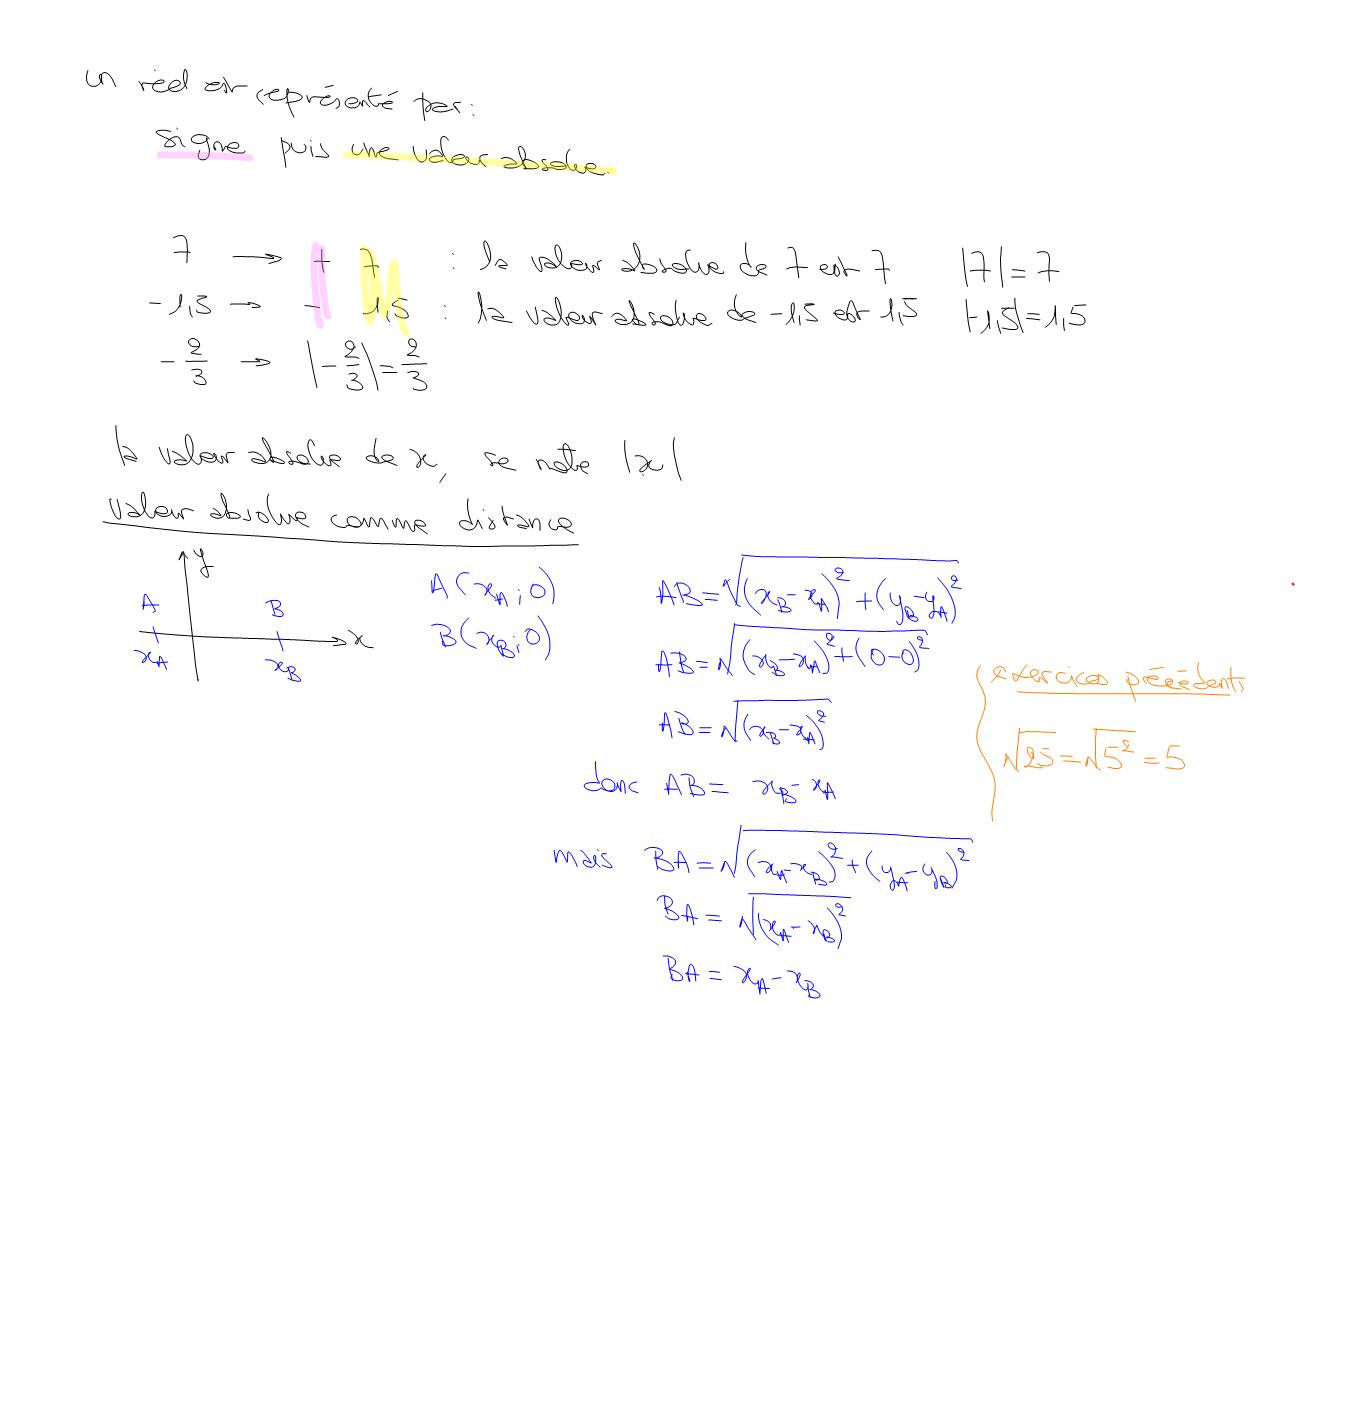 un réel est représenté par:
signe puis une valeur absolue.
7 → + 7 : la valeur absolue de 7 est 7 |7| = 7
-1,5 → - 1,5 : la valeur absolue de -1,5 est 1,5 |-1,5| = 1,5
-2/3 → |-2/3| = 2/3
la valeur absolue de x, se note |x|
valeur absolue comme distance
y
A B
x
x_A x_B
A(x_A ; 0)
B(x_B ; 0)
AB = √((x_B - x_A)² + (y_B - y_A)²)
AB = √((x_B - x_A)² + (0-0)²)
AB = √((x_B - x_A)²)
donc AB = x_B - x_A
exercices précédents
√25 = √5² = 5
mais BA = √((x_A - x_B)² + (y_A - y_B)²)
BA = √((x_A - x_B)²)
BA = x_A - x_B